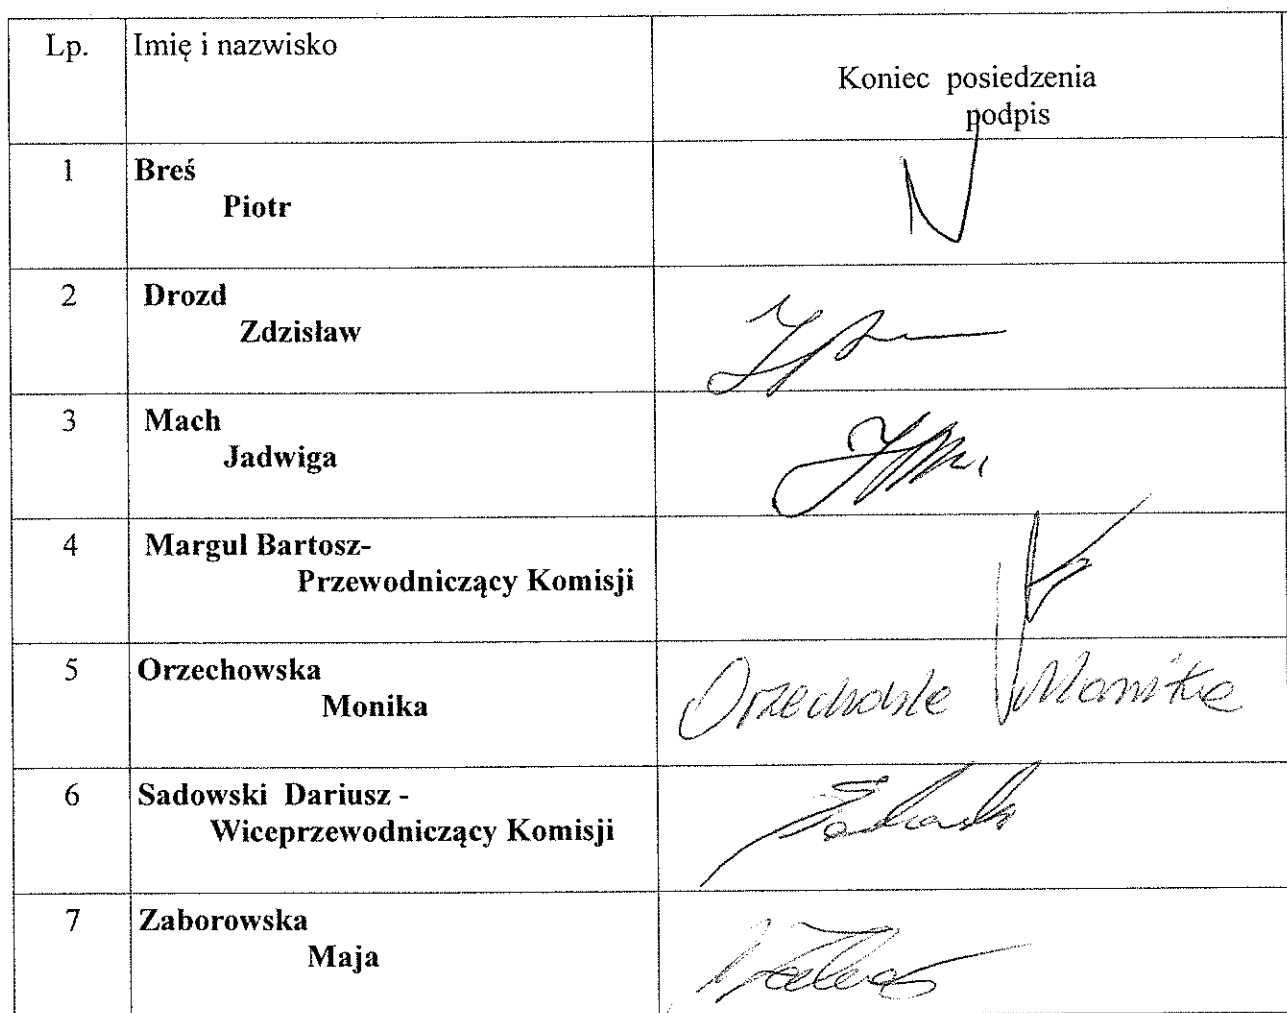 Lp. Imię i nazwisko
Koniec posiedzenia
podpis
1 Breś
Piotr
2 Drozd
Zdzisław
3 Mach
Jadwiga
4 Margul Bartosz-
Przewodniczący Komisji
5 Orzechowska
Monika
Monika
6 Sadowski Dariusz -
Wiceprzewodniczący Komisji
7 Zaborowska
Maja